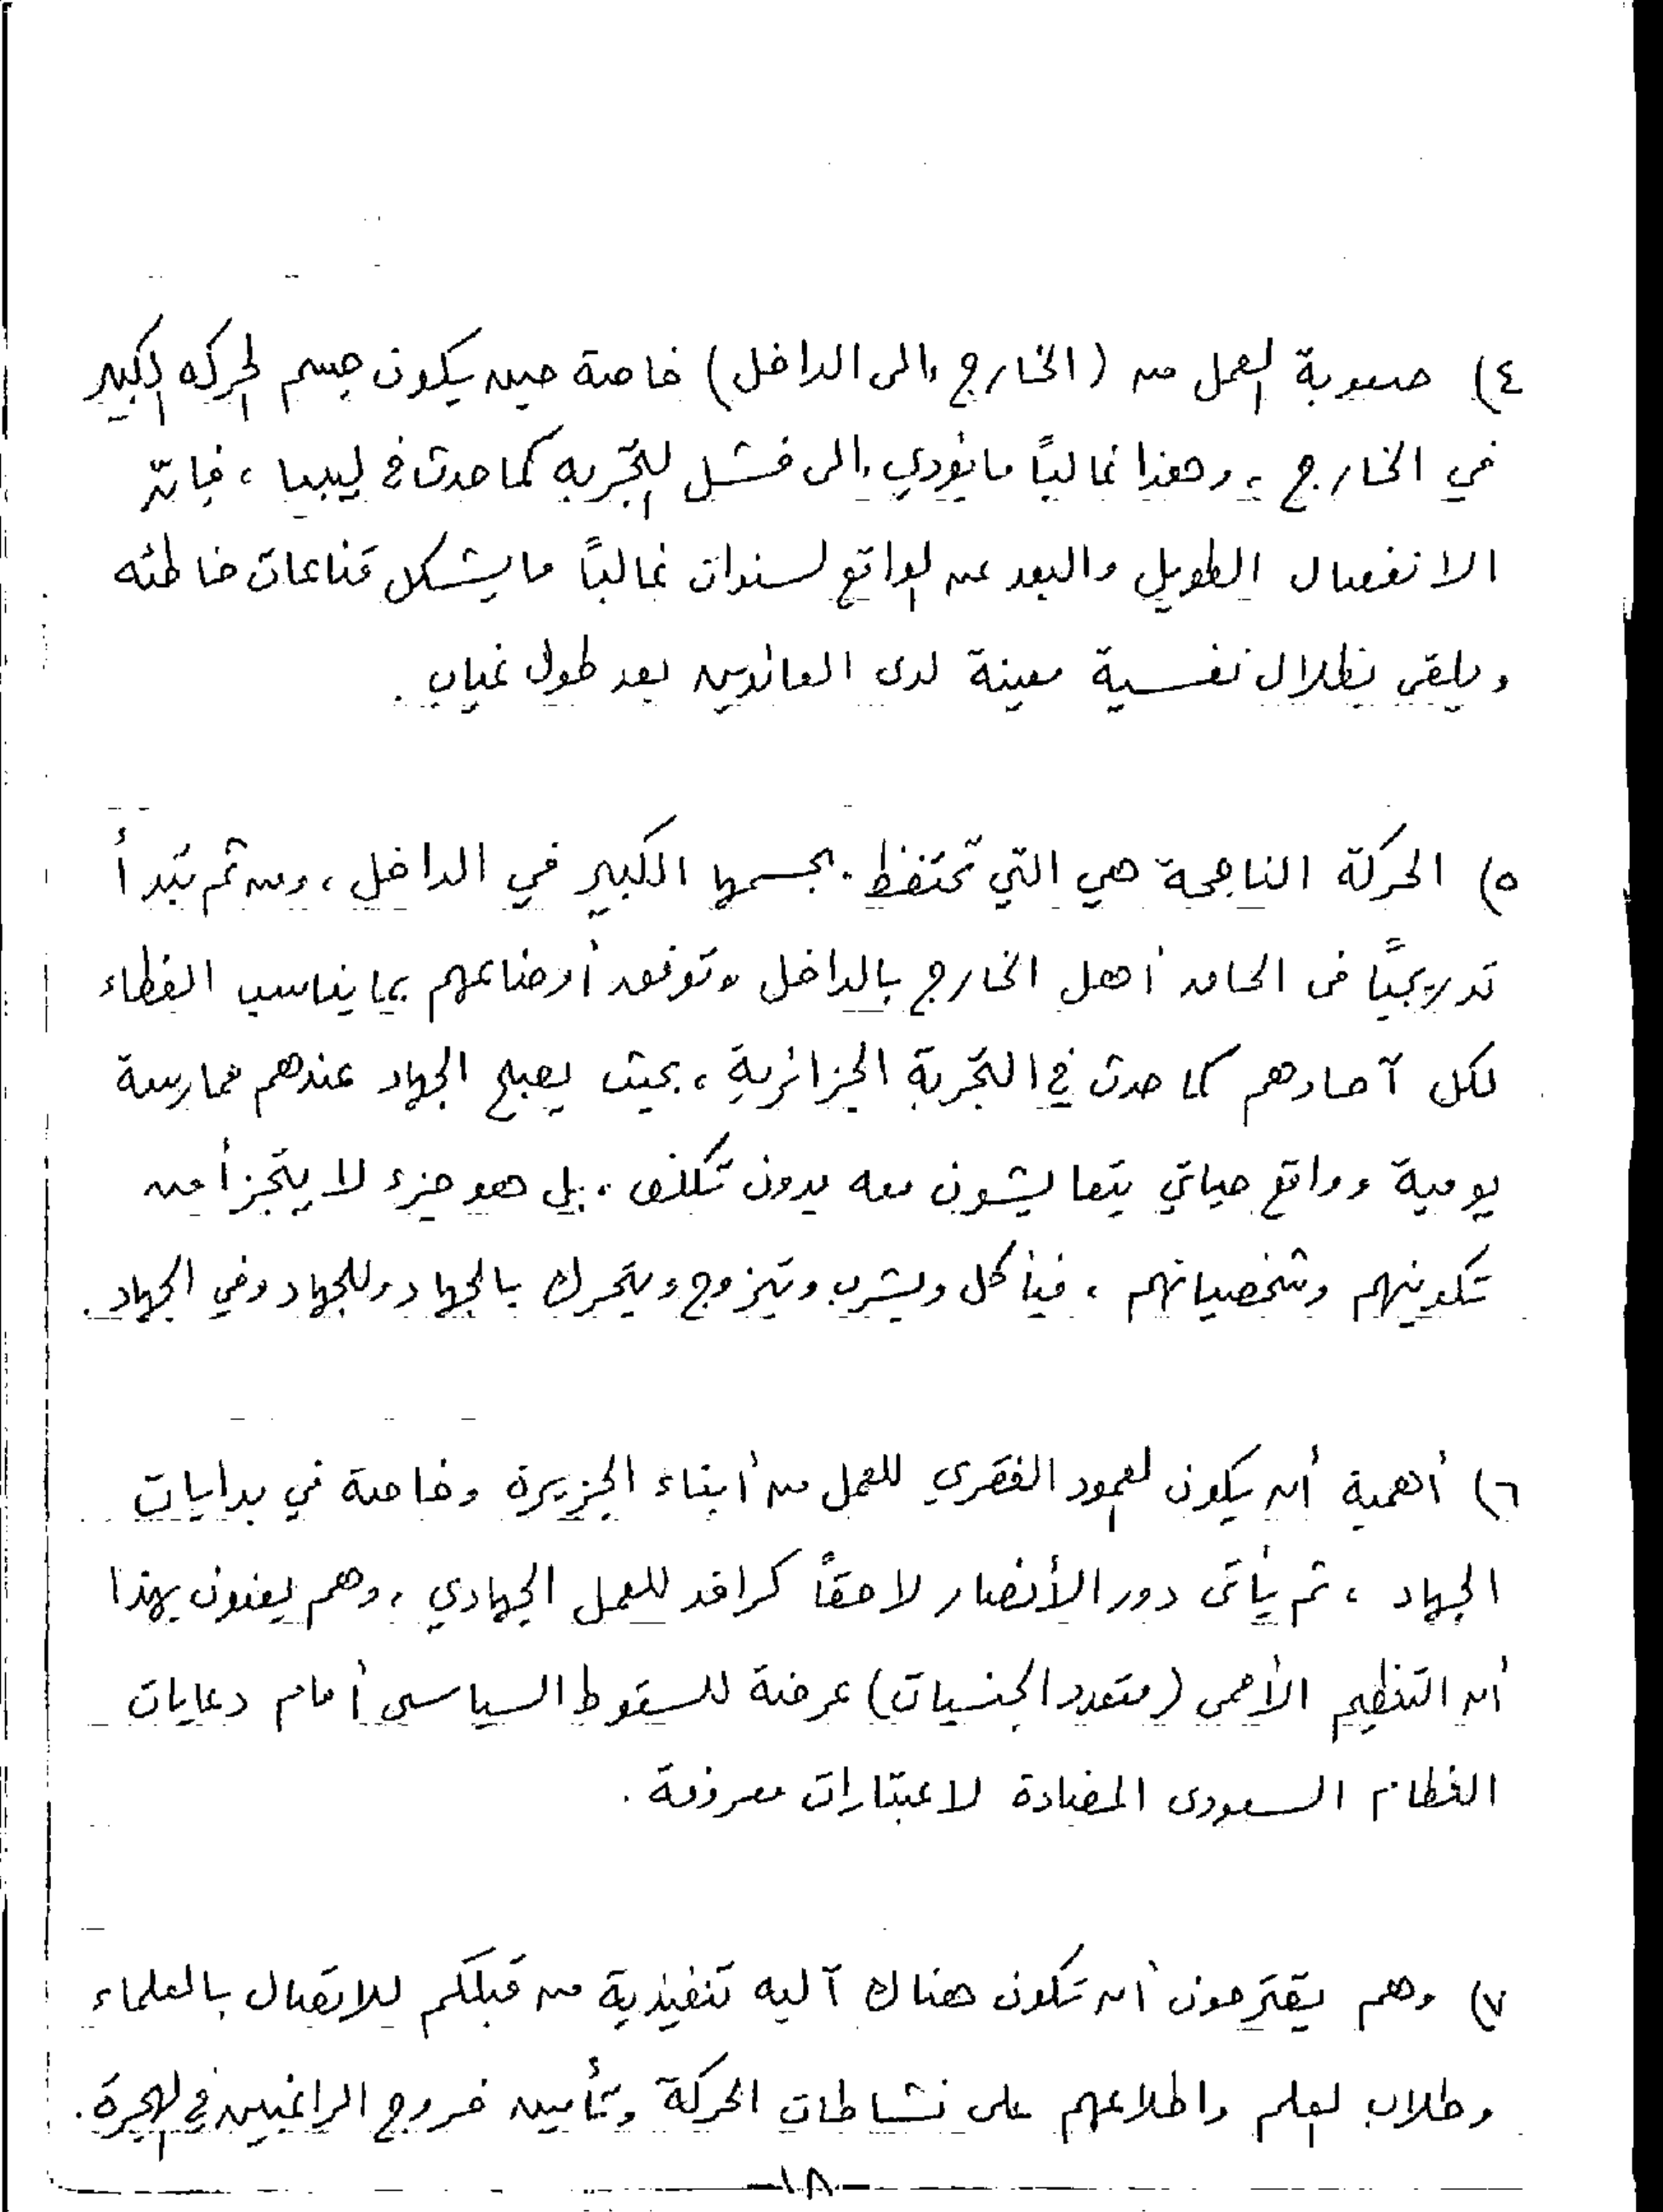 ٤) صعوبة العمل من (الخارج إلى الداخل) خاصة حين يكون جسم الحركه الكبير
في الخارج ، وهذا غالباً ما يؤدي إلى فشل التجربه كما حدث في ليبيا ، فإن
الانفصال الطويل والبعد عن الواقع لسنوات غالباً ما يشكل قناعات خاطئه
ويلقى بظلال نفسية معينة لدى العائدين بعد طول غياب .
٥) الحركة الناجحة هي التي تحتفظ بجسمها الكبير في الداخل ، ومن ثم تبدأ
تدريجيًا في الحاق أهل الخارج بالداخل وتوفق أوضاعهم بما يناسب الغطاء
لكل آحادهم كما حدث في التجربة الجزائرية ، بحيث يصبح الجهاد عندهم ممارسة
يومية وواقع حياتي يتعايشون معه بدون تكلف ، بل هو جزء لا يتجزأ من
تكوينهم وشخصياتهم ، فيأكل ويشرب ويتزوج ويتحرك بالجهاد وللجهاد وفي الجهاد .
٦) أهمية أن يكون العمود الفقري للعمل من أبناء الجزيرة وخاصة في بدايات
الجهاد ، ثم يأتى دور الأنصار لاحقاً كرافد للعمل الجهادي ، وهم يعنون بهذا
أن التنظيم الأممى (متعدد الجنسيات) عرضة للسقوط السياسى أمام دعايات
النظام السعودى المضادة لاعتبارات معروفة .
٧) وهم يقترحون أن تكون هناك آليه تنفيذية من قبلكم للاتصال بالعلماء
وطلاب العلم واطلاعهم على نشاطات الحركة وتأمين خروج الراغبين في الهجرة .
-١٨-